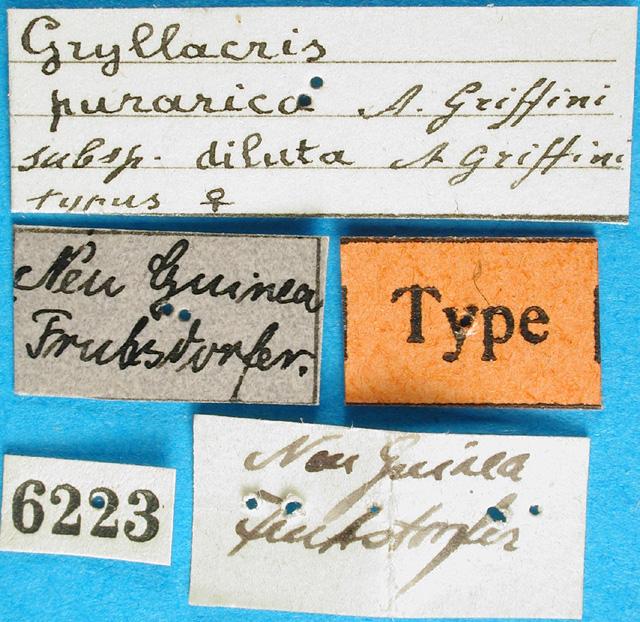 Gryllacris
purarica A. Griffini
subsp. diluta A Griffini
typus ♀
Neu Guinea
Fruhsdorfer.
Type
6223
Neu Guinea
Fruhstorfer